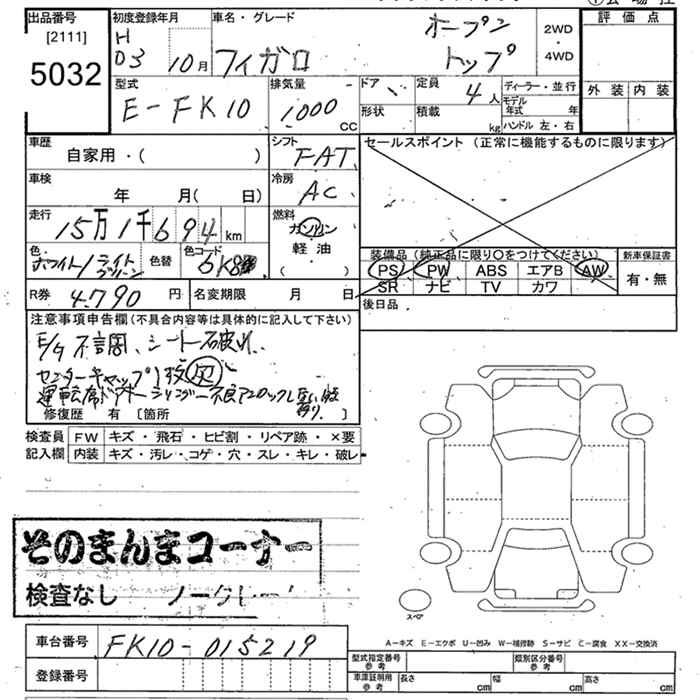 出品番号 初度登録年月 車名・グレード 評価点
[2111] H オープン 2WD
5032 03 10月 フィガロ トップ 4WD
外装 内装
型式 排気量 ドア 定員 ディーラー・並行
E-FK10 1000 CC 4人 モデル年式 年
形状 積載 kg ハンドル 左・右
車歴 シフト セールスポイント (正常に機能するものに限ります)
自家用・( ) FAT
車検 冷房
年 月( 日) AC
走行 燃料
15万1千694km ガソリン
軽油
( )
色 色替 色コード 装備品(純正品に限り○をつけてください) 新車保証書
ホワイト/ライトグリーン 6K8 PS PW ABS エアB AW 有・無
SR ナビ TV カワ
R券 4,790円 名変期限 月 日 後日品
注意事項申告欄(不具合内容等は具体的に記入して下さい)
E/G不調、シート破れ
センターキャップ1枚欠
運転席ドア
修復歴 有 [箇所 ]
検査員 FW キズ・飛石・ヒビ割・リペア跡・×要
記入欄 内装 キズ・汚レ・コゲ・穴・スレ・キレ・破レ
そのまんまコーナー
検査なし ノークレーム
スペア
A-キズ E-エクボ U-凹み W-補修跡 S-サビ C-腐食 XX-交換済
車台番号 FK10-015219
登録番号
型式指定番号 参考 類別区分番号 参考
車庫証明用 参考 長さ cm 幅 cm 高さ cm